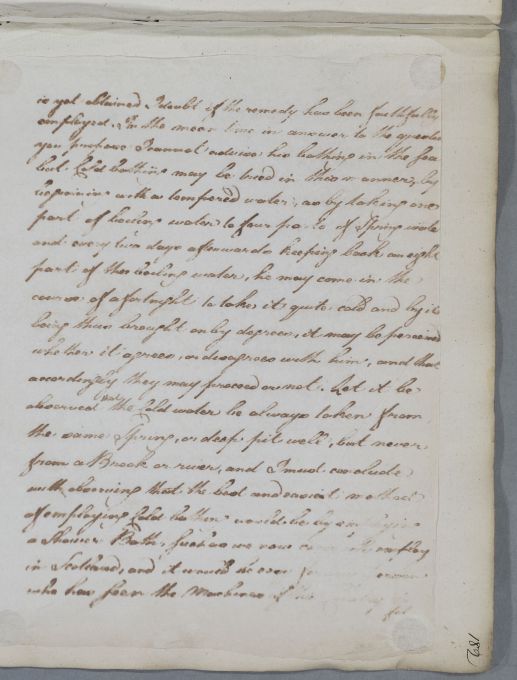 is yet obtained I doubt if the remedy has been faithfully
employed. In the mean time in answer to the queries
you propose I cannot advise his bathing in the Sea
but Cold bathing may be used in this manner, by
beginning with a tempered water, as by taking one
part of boiling water to four parts of Spring water
and every two days afterwards keeping back an eight
part of this boiling water, he may come in the
course of a fortnight to take it quite cold and by its
being thus brought on by degrees, it may be perceived
whether it agrees, or disagrees with him, and that
accordingly they may proceed or not. Let it be
observed that the Cold water be always taken from
the same Spring, or deep pit well, but never
from a Brook or river, and I must conclude
with observing that the best and easiest method
of employing Cold bathing would be by employing
a Shower Bath, just as we now employ
in Scotland, and it would be even
who has seen the Machines of this
182